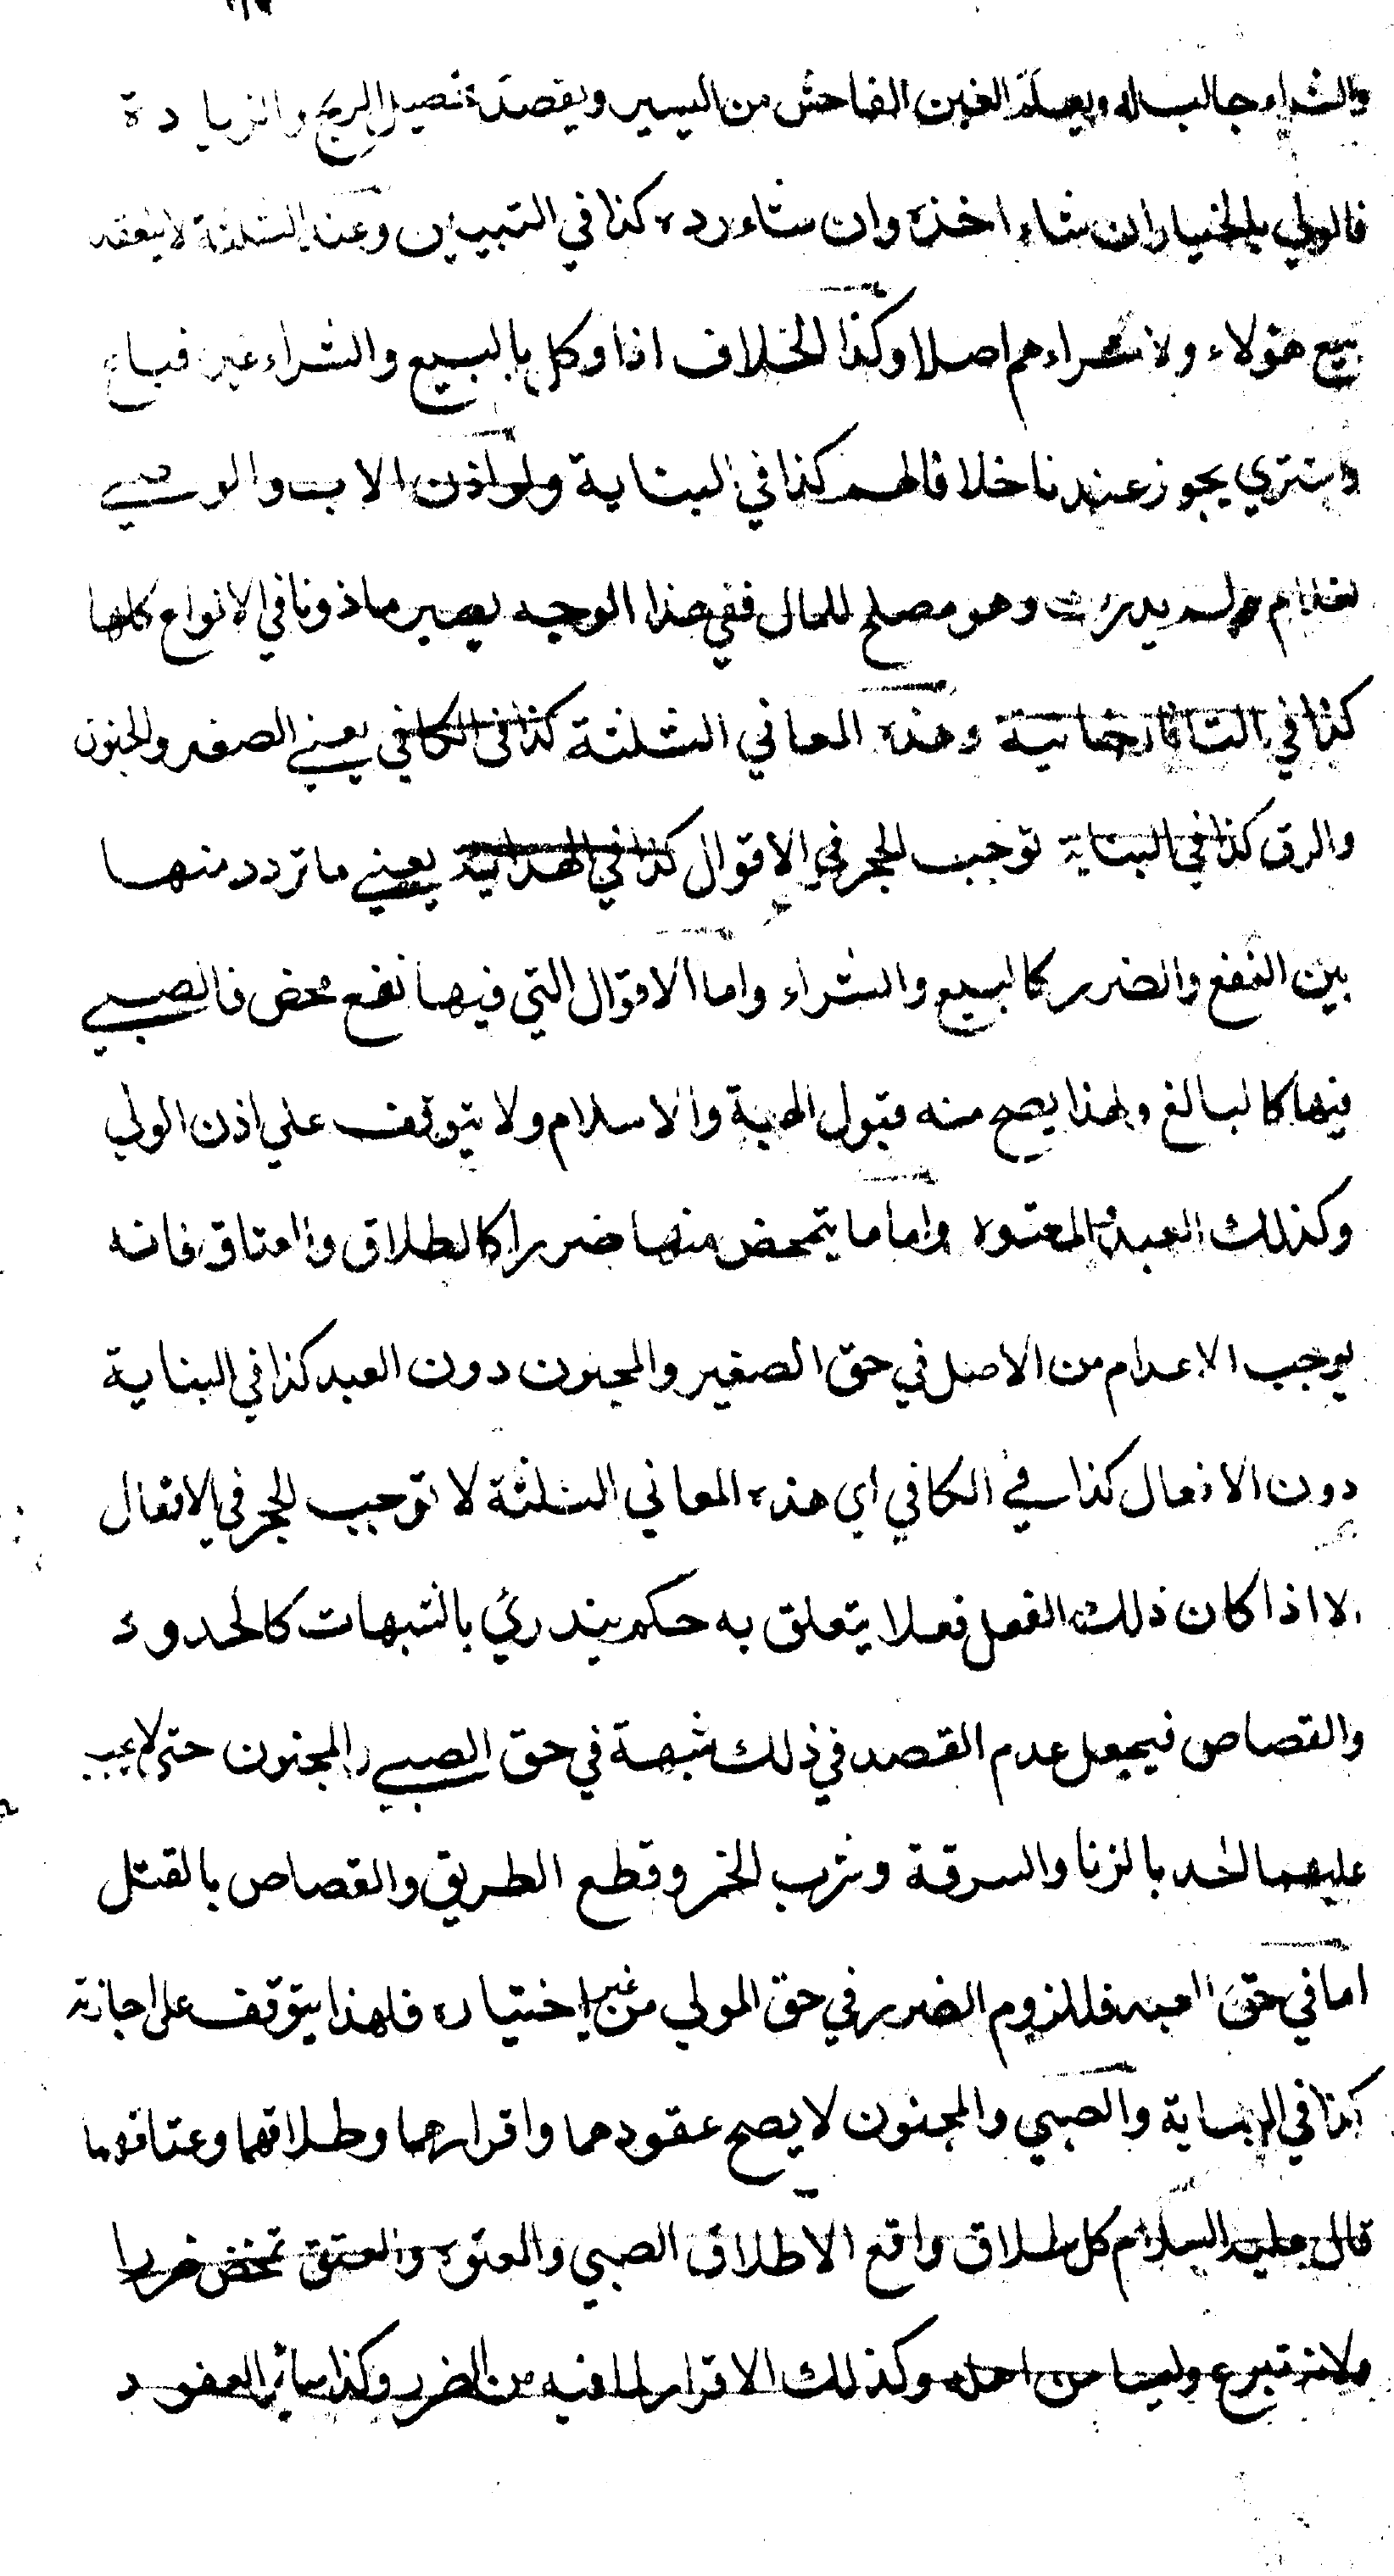 والشراء جالب له ويعلم الغبن الفاحش من اليسير ويقصد تحصيل الربح والزيادة
فالولي بالخيار ان شاء اخذه وان شاء رده كذا في التبيين وعند الثلثة لا ينعقد
بيع هؤلاء ولا شراءهم اصلا وكذا الخلاف اذا وكل بالبيع والشراء غير فباع
واشتري يجوز عندنا خلافا لهم كذا في البناية ولو اذن الاب والوصي
لغلام ولم يدرك وهو مصلح للمال ففي هذا الوجه يصير ماذونا في الانواع كلها
كذا في التاتارخانية وهذه المعاني الثلثة كذا في الكافي يعني الصغر والجنون
والرق كذا في البناية توجب الحجر في الاقوال كذا في الهداية يعني ما تردد منها
بين النفع والضرر كالبيع والشراء واما الاقوال التي فيها نفع محض فالصبي
فيها كالبالغ ولهذا يصح منه قبول الهبة والاسلام ولا يتوقف علي اذن الولي
وكذلك العبد والمعتوه واما ما يتمحض منها ضررا كالطلاق والعتاق فانه
يوجب الاعدام من الاصل في حق الصغير والمجنون دون العبد كذا في البناية
دون الافعال كذا في الكافي اي هذه المعاني الثلثة لا توجب الحجر في الافعال
الا اذا كان ذلك الفعل فعلا يتعلق به حكم يندرئ بالشبهات كالحدود
والقصاص فيجعل عدم القصد في ذلك شبهة في حق الصبي والمجنون حتي لا يجب
عليهما الحد بالزنا والسرقة وشرب الخمر وقطع الطريق والقصاص بالقتل
اما في حق العبد فللزوم الضرر في حق المولي من غير اختياره فلهذا يتوقف علي اجازته
كذا في البناية والصبي والمجنون لا يصح عقودهما واقرارهما وطلاقهما وعتاقهما
قال عليه السلام كل طلاق واقع الا طلاق الصبي والمعتوه والعتق تمحض ضررا
ولانه تبرع وليسا من اهله وكذلك الاقرار لما فيه من الضرر وكذا سائر العقود